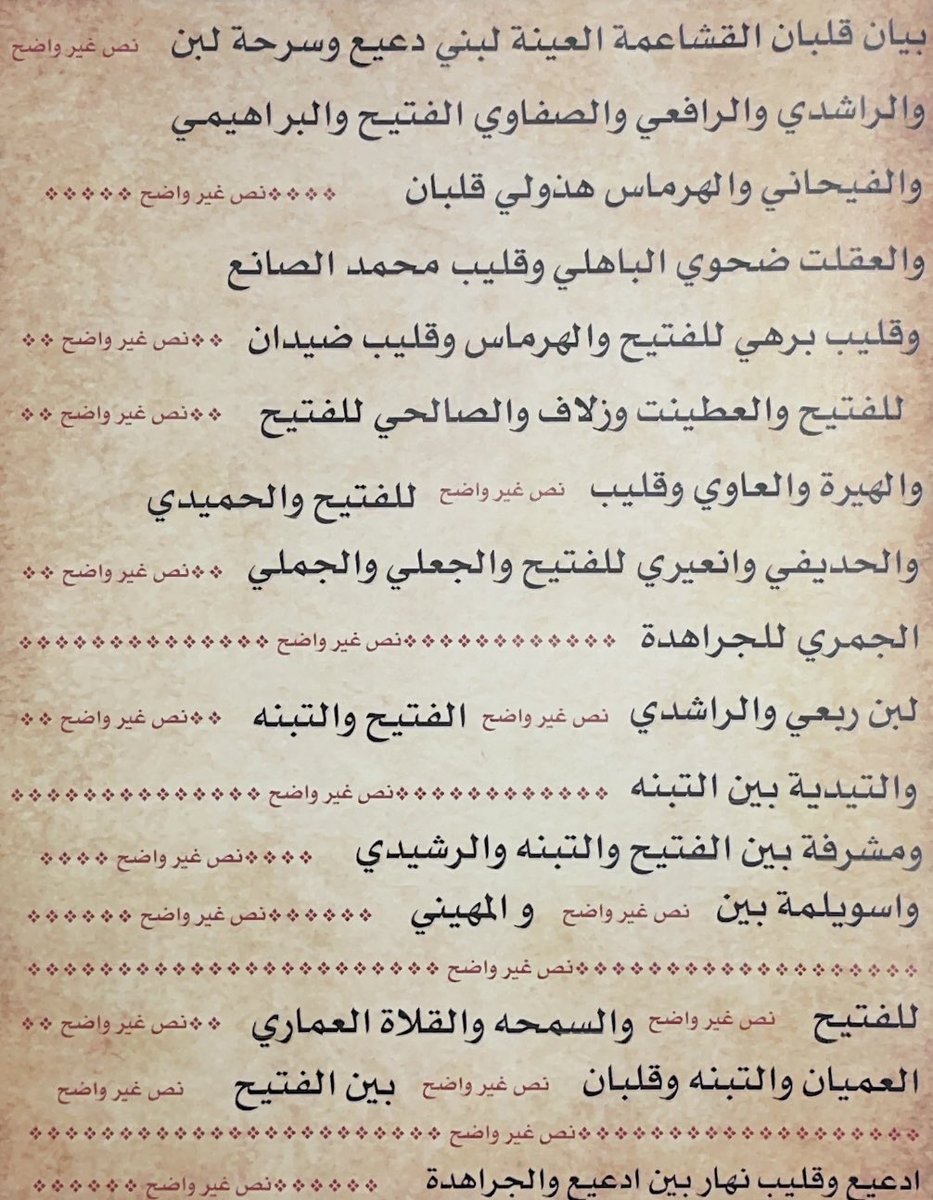 بيان قلبان القشاعمة العينة لبني دعيع وسرحة لبن نص غير واضح
والراشدي والرافعي والصفاوي الفتيح والبراهيمي
والفيحاني والهرماس هذولي قلبان ❖❖❖❖نص غير واضح ❖❖❖❖❖
والعقلت ضحوي الباهلي وقليب محمد الصانع
وقليب برهي للفتيح والهرماس وقليب ضيدان ❖❖نص غير واضح ❖❖
للفتيح والعطينت وزلاف والصالحي للفتيح ❖❖نص غير واضح ❖❖
والهيرة والعاوي وقليب نص غير واضح للفتيح والحميدي
والحديفي وانعيري للفتيح والجعلي والجملي ❖❖نص غير واضح ❖❖
الجمري للجراهدة ❖❖❖❖❖❖❖❖❖❖❖❖نص غير واضح ❖❖❖❖❖❖❖❖❖❖❖❖❖❖
لبن ربعي والراشدي نص غير واضح الفتيح والتبنه ❖❖نص غير واضح ❖❖
والتيدية بين التبنه ❖❖❖❖❖❖❖❖❖❖❖❖نص غير واضح ❖❖❖❖❖❖❖❖❖❖❖❖❖❖
ومشرفة بين الفتيح والتبنه والرشيدي ❖❖❖❖نص غير واضح ❖❖❖❖
واسويلمة بين نص غير واضح و المهيني ❖❖❖❖❖❖نص غير واضح ❖❖❖❖❖❖
❖❖❖❖❖❖❖❖❖❖❖❖❖❖❖❖❖❖❖نص غير واضح ❖❖❖❖❖❖❖❖❖❖❖❖❖❖❖❖❖❖❖❖❖❖❖
للفتيح نص غير واضح والسمحه والقلاة العماري ❖❖نص غير واضح ❖❖
العميان والتبنه وقلبان نص غير واضح بين الفتيح نص غير واضح
❖❖❖❖❖❖❖❖❖❖❖❖❖❖❖❖❖❖❖نص غير واضح ❖❖❖❖❖❖❖❖❖❖❖❖❖❖❖❖❖❖❖❖❖❖❖
ادعيع وقليب نهار بين ادعيع والجراهدة ❖❖❖❖❖❖نص غير واضح ❖❖❖❖❖❖